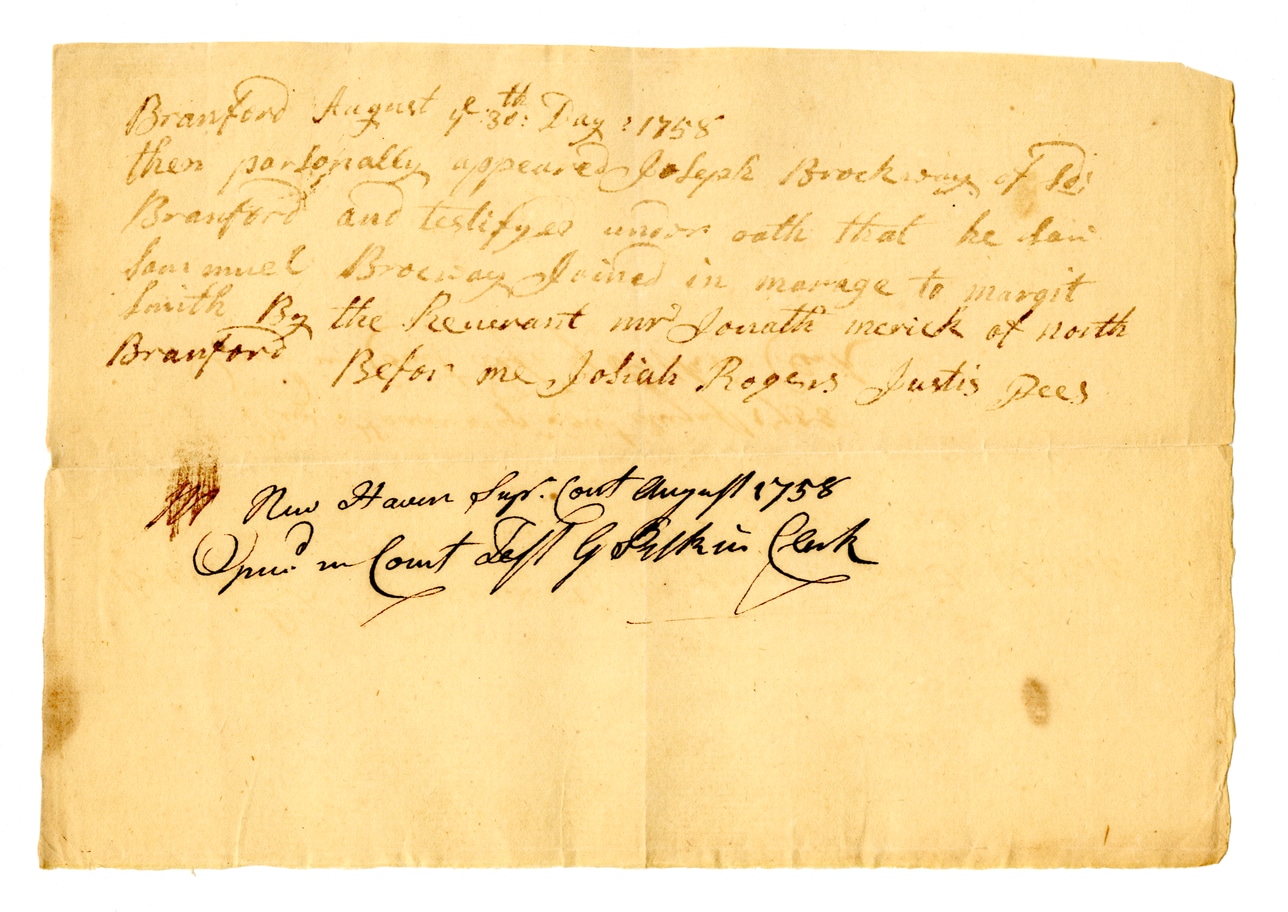 Branford August ye 30th: Day: 1758
then parsonally appeared Joseph Brockway of sd:
Branford and testifyed under oath that he saw
Sammuel Brocway Joined in marage to margit
Smith By the Reuerant mr Jonath merick of north
Branford Befor me Josiah Rogers Justis Pees
New Haven Supr. Court August 1758
Opend in Court Test G Pitkin Clerk